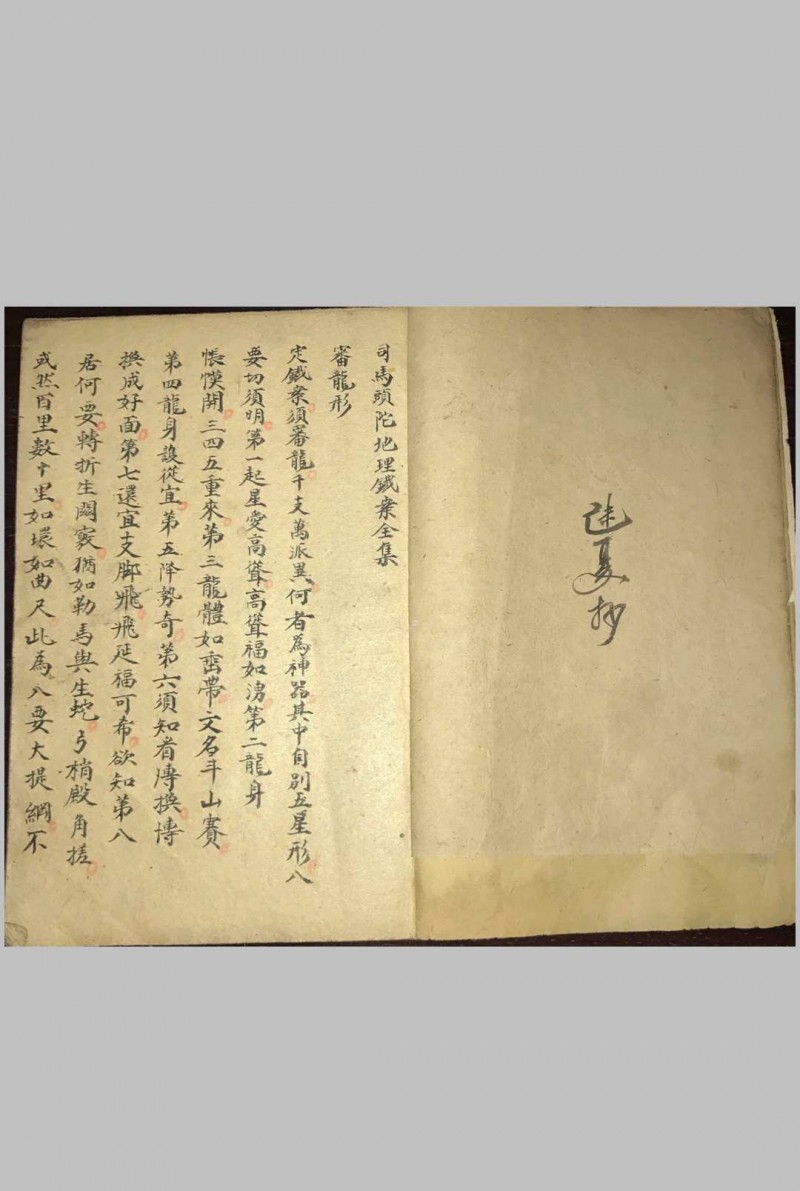 夏抄
司馬頭陀地理鐵案全集
審龍形
定鐵案須審龍千支萬派異何者為神器其中自別五星形八
要切須明第一起星愛高聳高聳福如湧第二龍身
帳幙開三四五重來第三龍體如帶文名斗山賽
第四龍身設從宜第五降勢奇第六須知看慱換慱
換成好面第七還宜支脚飛飛延福可希欲知第八
居何要轉折生闔竅猶如勒馬與生蛇弓梢殿角搓
或然百里數十里如環如曲尺此為八要大提綱不